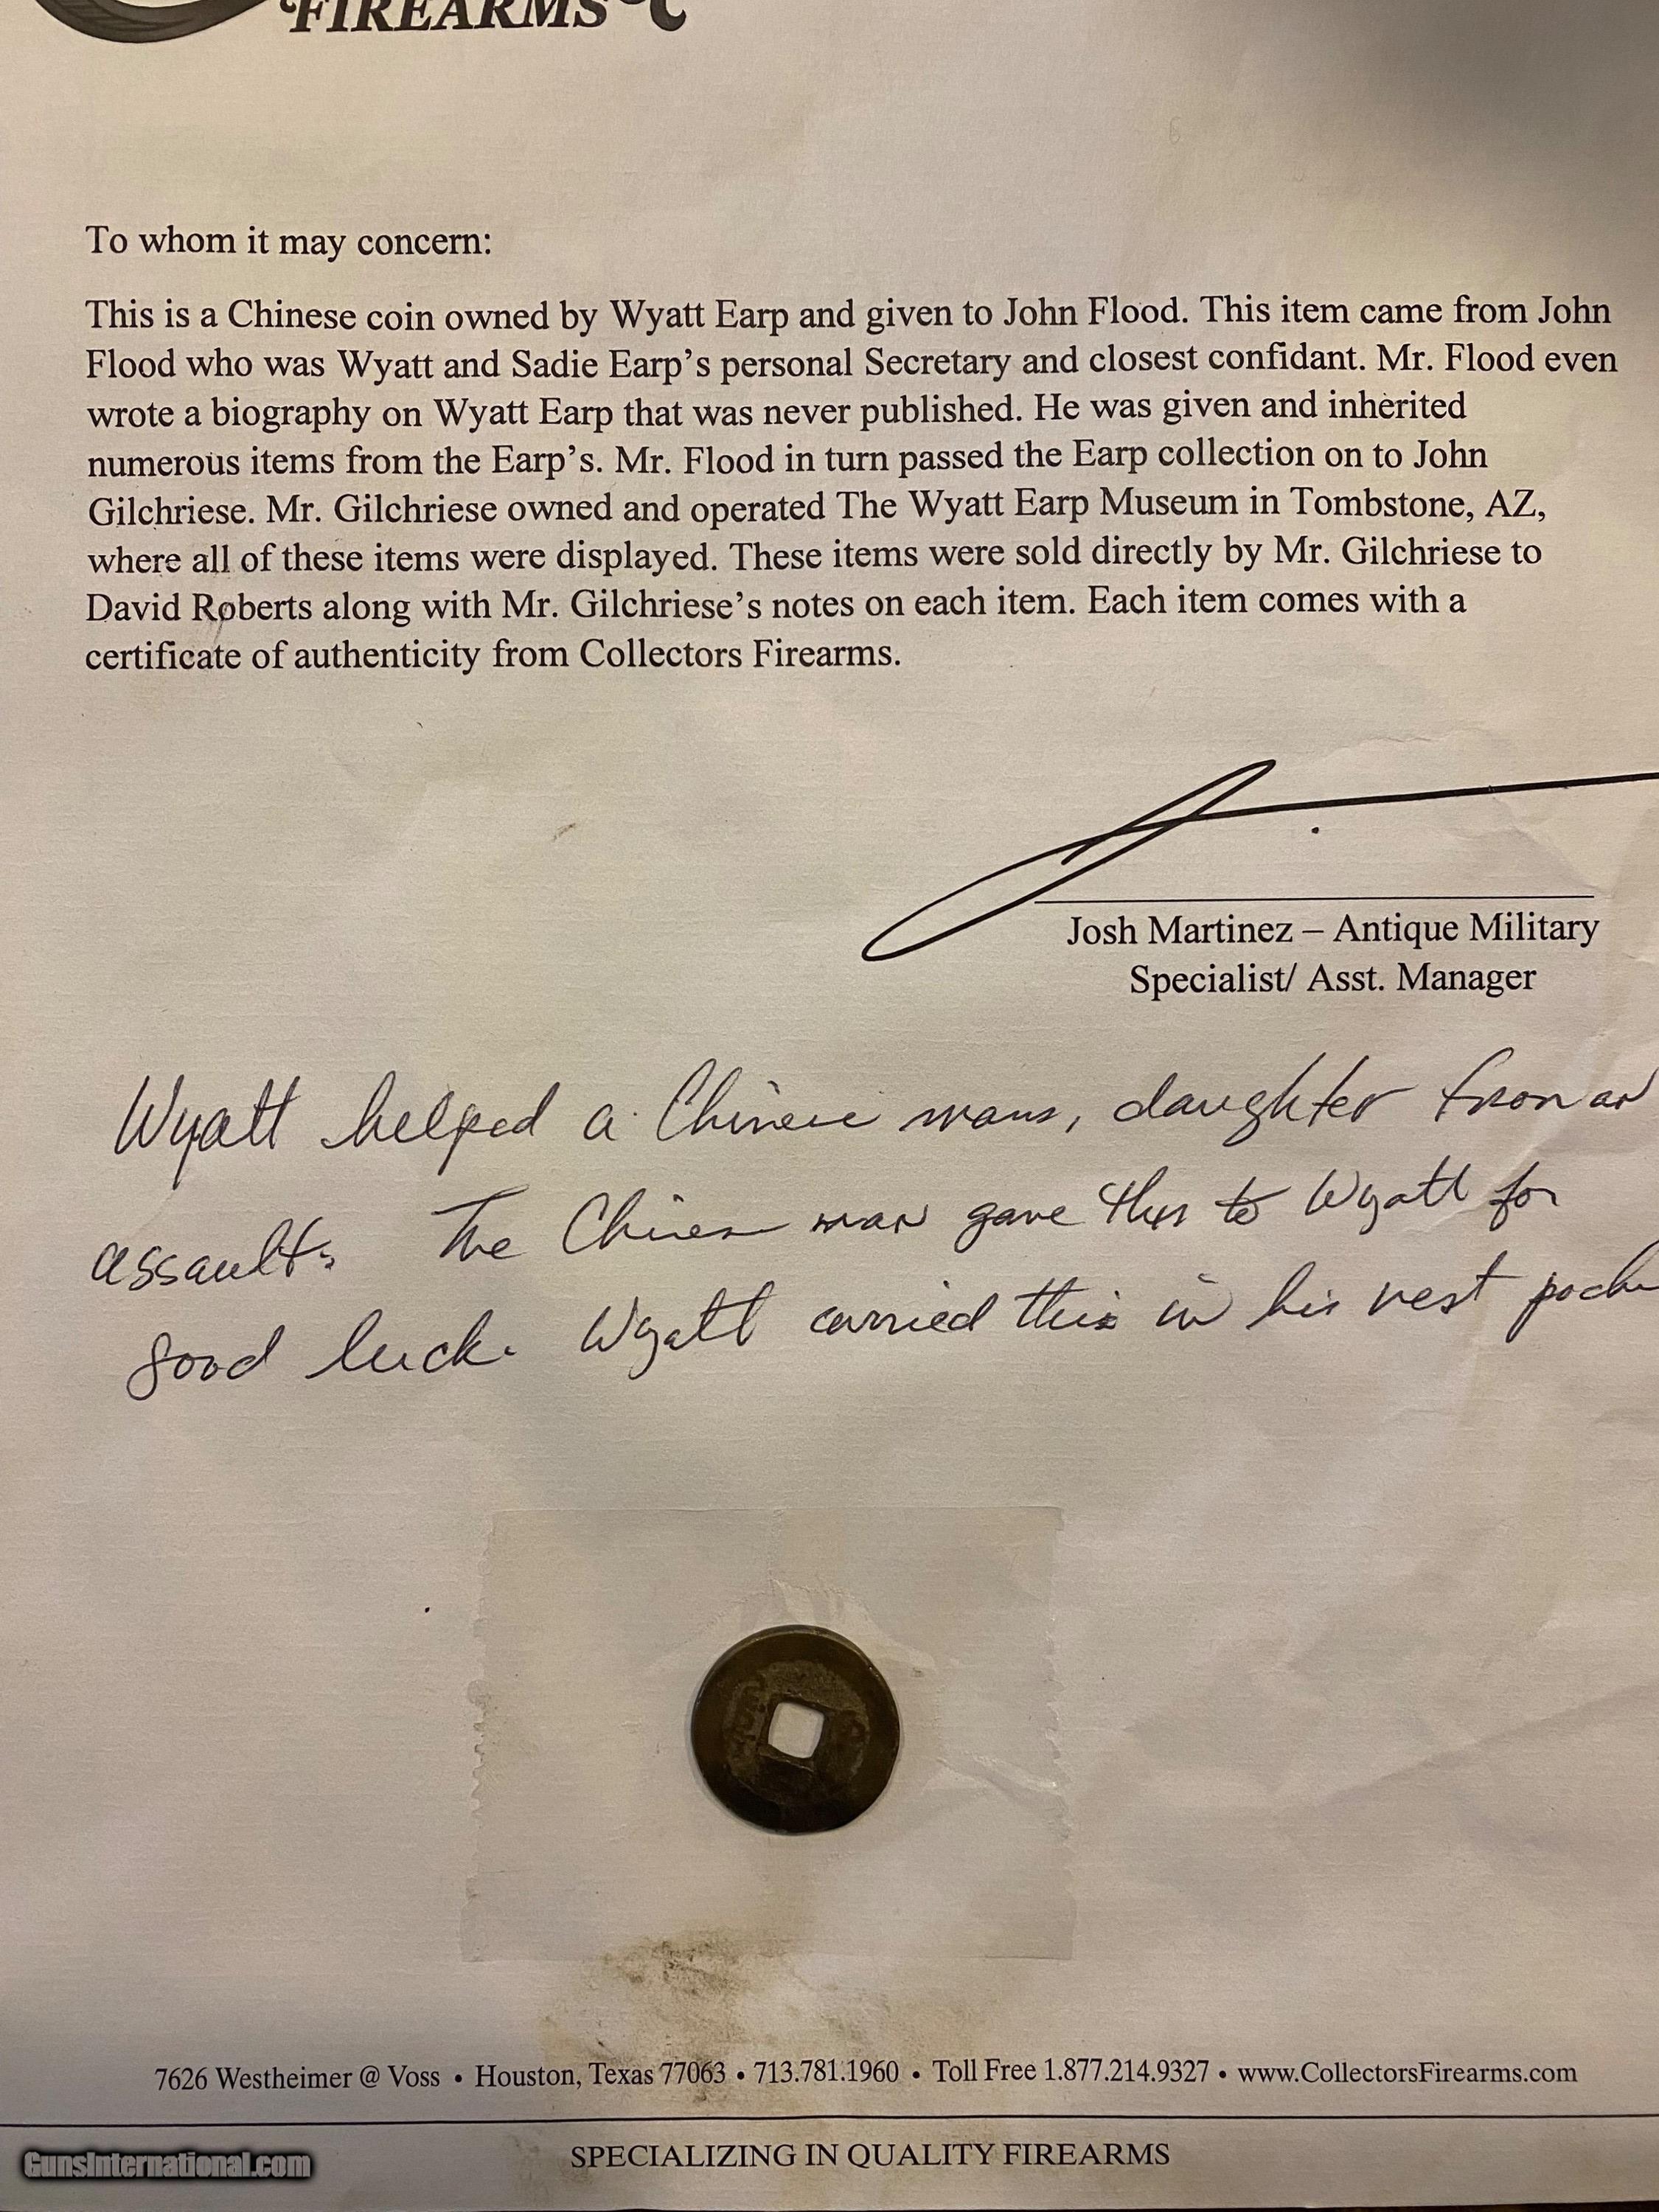 FIREARMS
To whom it may concern:
This is a Chinese coin owned by Wyatt Earp and given to John Flood. This item came from John
Flood who was Wyatt and Sadie Earp's personal Secretary and closest confidant. Mr. Flood even
wrote a biography on Wyatt Earp that was never published. He was given and inherited
numerous items from the Earp's. Mr. Flood in turn passed the Earp collection on to John
Gilchriese. Mr. Gilchriese owned and operated The Wyatt Earp Museum in Tombstone, AZ,
where all of these items were displayed. These items were sold directly by Mr. Gilchriese to
David Roberts along with Mr. Gilchriese's notes on each item. Each item comes with a
certificate of authenticity from Collectors Firearms.
Josh Martinez – Antique Military
Specialist/ Asst. Manager
Wyatt helped a Chinese mans, daughter from an
assault. The Chinese man gave this to Wyatt for
good luck. Wyatt carried this in his vest pocke
7626 Westheimer @ Voss • Houston, Texas 77063 • 713.781.1960 • Toll Free 1.877.214.9327 • www.CollectorsFirearms.com
SPECIALIZING IN QUALITY FIREARMS
GunsInternational.com